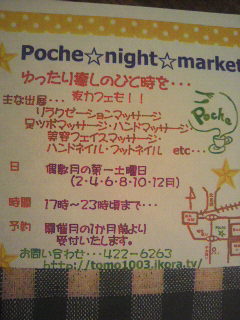 Poche☆night☆market
ゆったり癒しのひと時を・・・
主な出展・・・夜カフェも!!
リラクゼーションマッサージ
足ツボマッサージ・ハンドマッサージ
美容フェイスマッサージ・
ハンドネイル・フットネイル etc・・・
Poche
日 偶数月の第一土曜日
(2・4・6・8・10・12月)
時間 17時～23時頃まで・・・
予約 開催月の1か月前より
受付いたします。
お問い合わせ・・・422-6263
http://tomo1003.ikora.tv/